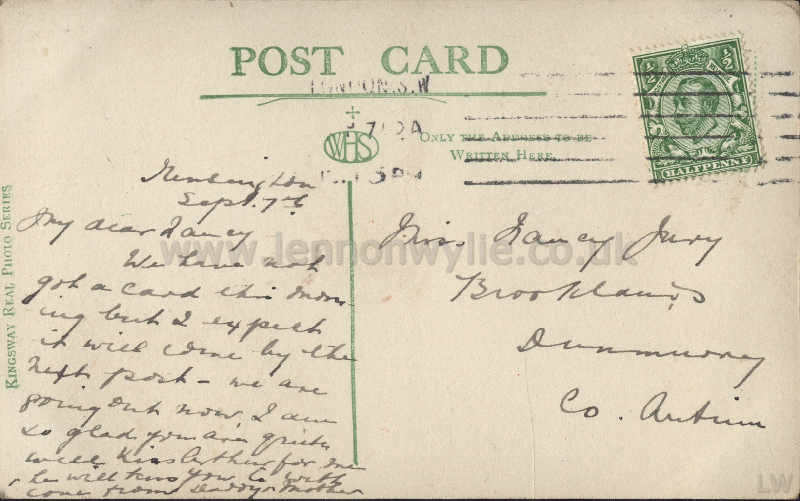 POST CARD
LONDON. S.W
ONLY THE ADDRESS TO BE
WRITTEN HERE.
WHS
KINGSWAY REAL PHOTO SERIES
½ ½
HALFPENNY
Kensington
Sept. 7th
My dear Nancy
We have not
got a card this morn
ing but I expect
it will come by the
next post - we are
going out now I am
so glad you are quite
well Kiss Arthur for me
& he will kiss you
come from Daddy & Mother
Miss. Nancy Jury
Brooklands
Dunmurry
Co. Antrim
www.lennonwylie.co.uk
LW